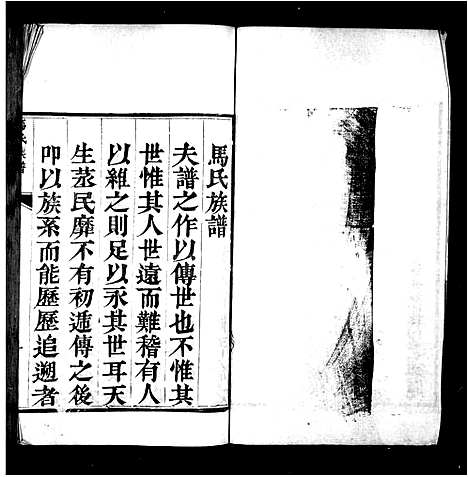 馬氏族譜
夫譜之作以傳世也不惟其
世惟其人世遠而難稽有人
以維之則足以永其世耳天
生蒸民靡不有初遞傳之後
叩以族系而能歷歷追遡者
馬氏族譜